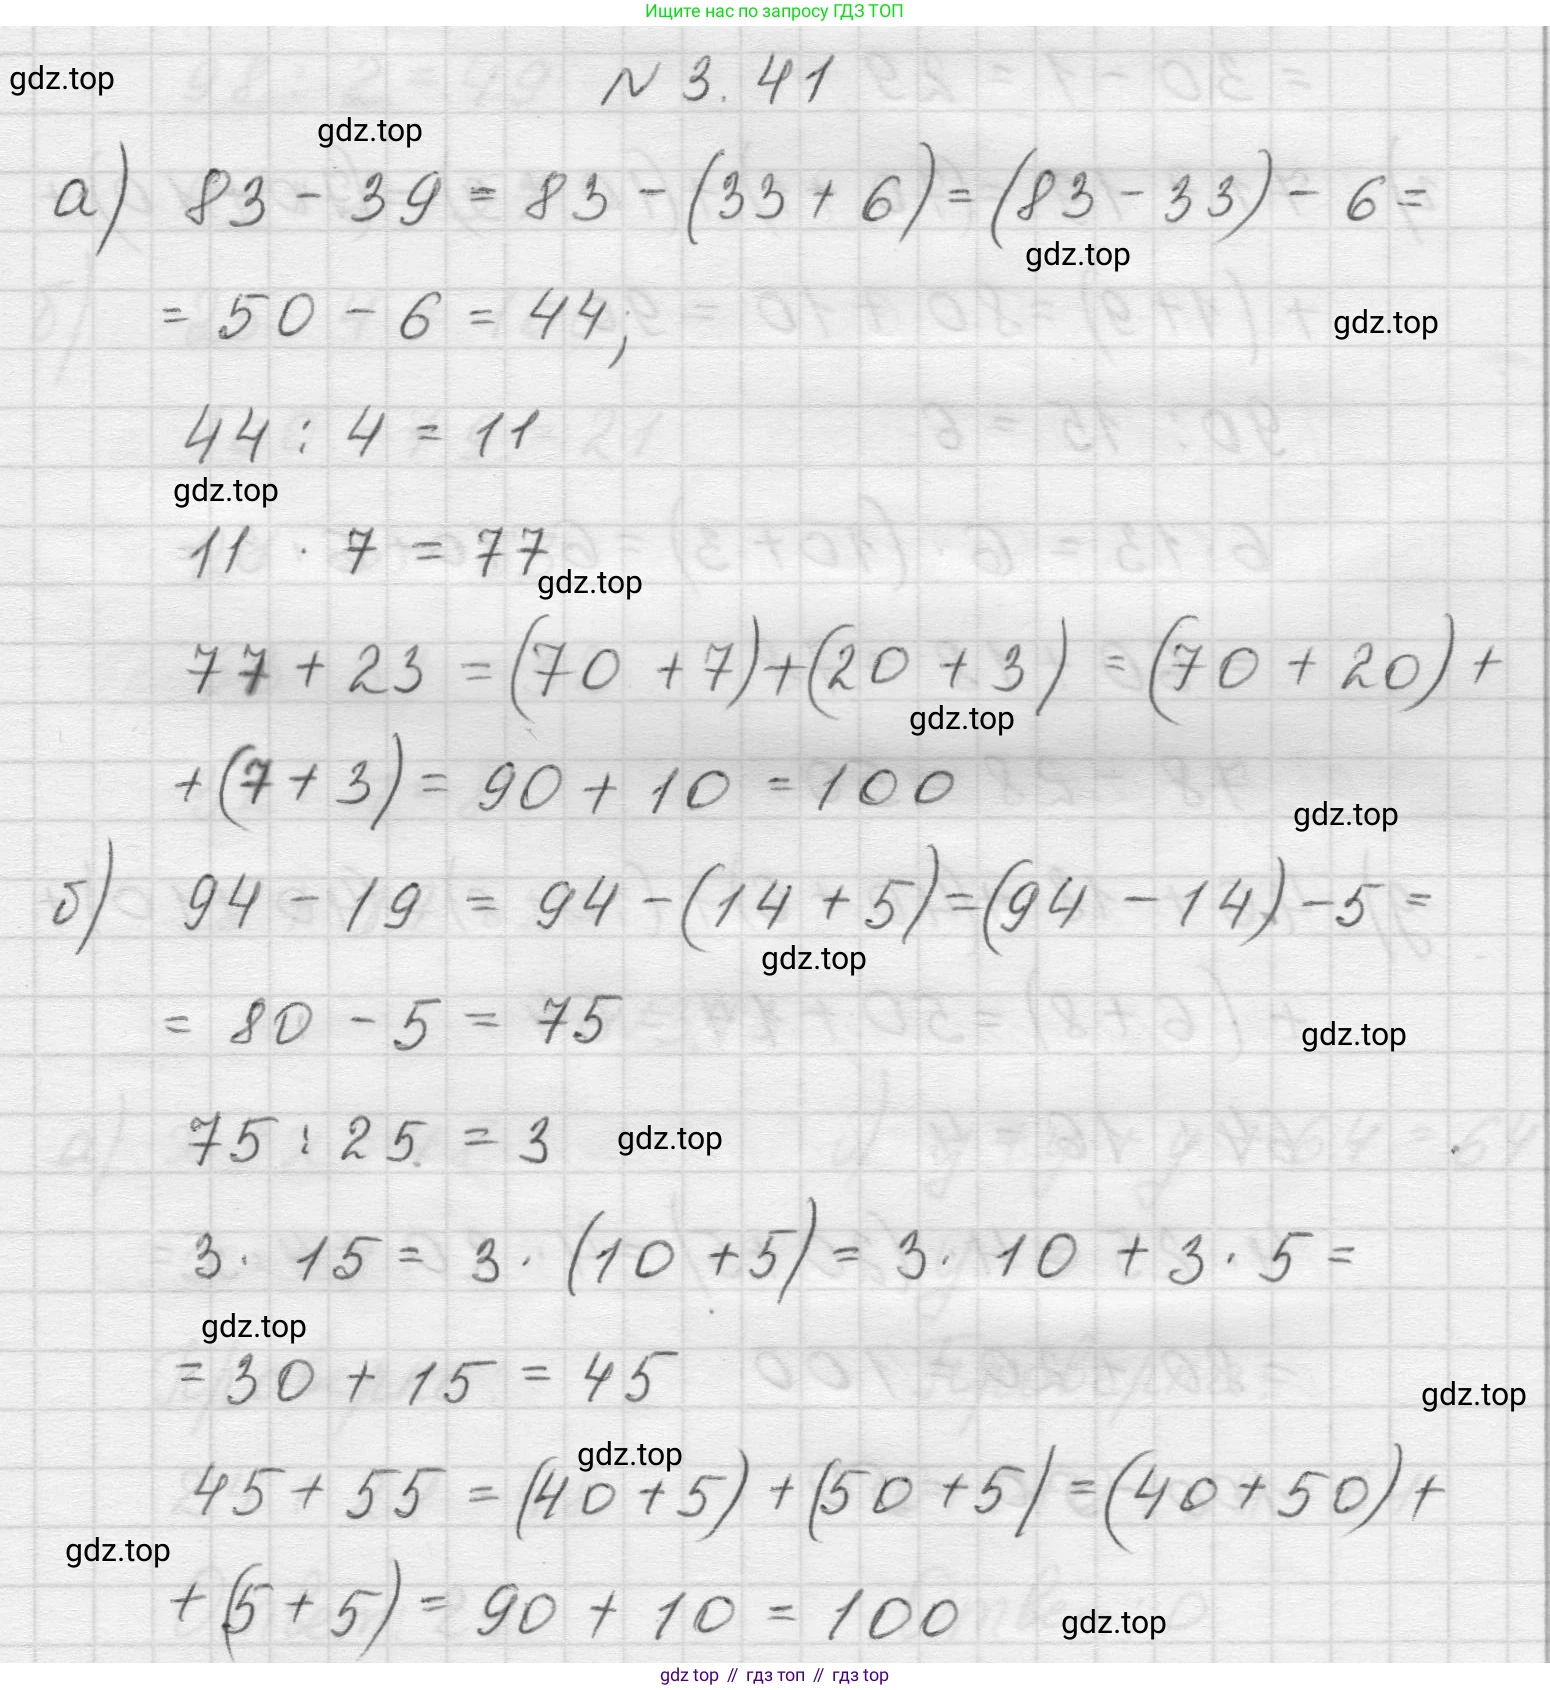 Ищите нас по запросу ГДЗ ТОП
gdz.top
N 3.41
gdz.top
а) 83 - 39 = 83 - (33 + 6) = (83 - 33) - 6 =
gdz.top
= 50 - 6 = 44;
gdz.top
44 : 4 = 11
gdz.top
11 · 7 = 77
gdz.top
77 + 23 = (70 + 7) + (20 + 3) = (70 + 20) +
gdz.top
+ (7 + 3) = 90 + 10 = 100
gdz.top
б) 94 - 19 = 94 - (14 + 5) = (94 - 14) - 5 =
gdz.top
= 80 - 5 = 75
gdz.top
75 : 25 = 3
gdz.top
3 · 15 = 3 · (10 + 5) = 3 · 10 + 3 · 5 =
gdz.top
= 30 + 15 = 45
gdz.top
gdz.top
45 + 55 = (40 + 5) + (50 + 5) = (40 + 50) +
gdz.top
+ (5 + 5) = 90 + 10 = 100
gdz.top
gdz top // гдз топ // гдз top